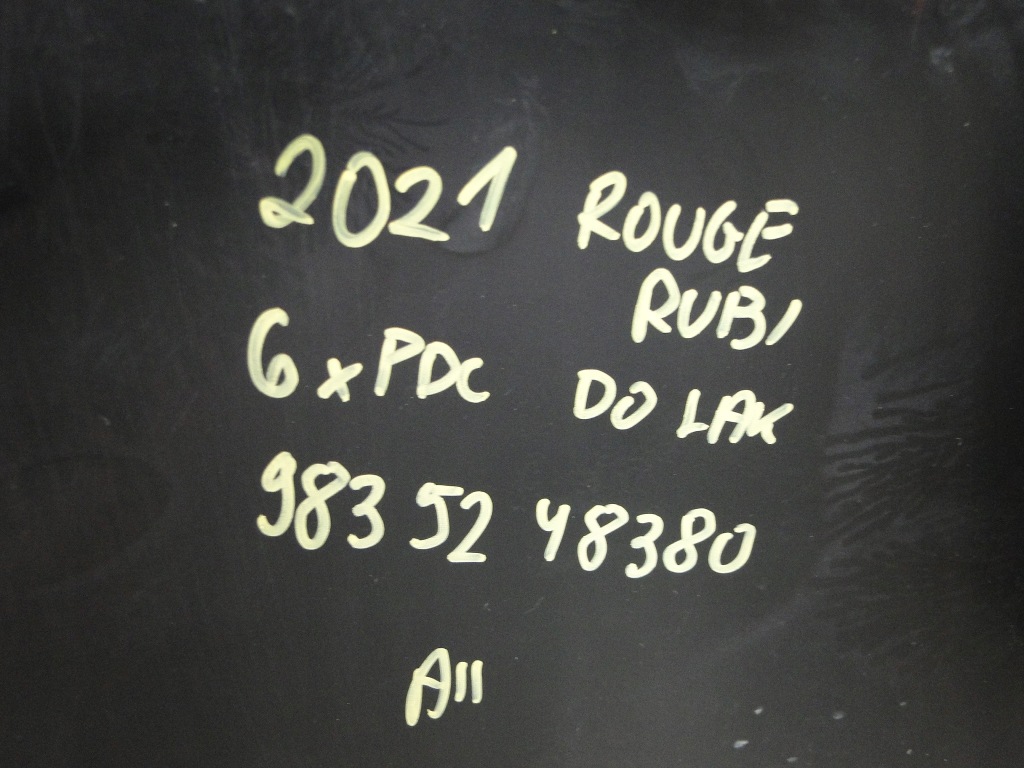 2021 ROUGE
RUBI
6 x PDC DO LAK
983 52 48380
A11